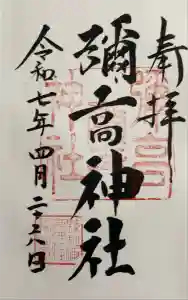 奉拝
彌高神社
令和七年四月二十八日